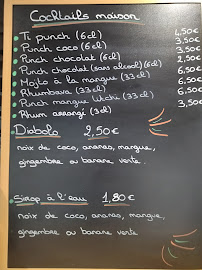 Cocktails maison
Ti punch (6cl) 4,50€
Punch coco (6cl) 3,50€
Punch chocolat (6cl)
Punch chocolat (sans alcool) (6cl)
Mojito à la mangue (33cl) 6,50€
Rhumbava (33cl) 6,50€
Punch mangue litchi (33cl) 6,50€
Rhum arrangé (3cl) 3,50€
Diabolo 2,50€
noix de coco, ananas, mangue,
gingembre ou banane verte.
Sirop à l'eau 1,80€
noix de coco, ananas, mangue,
gingembre ou banane verte